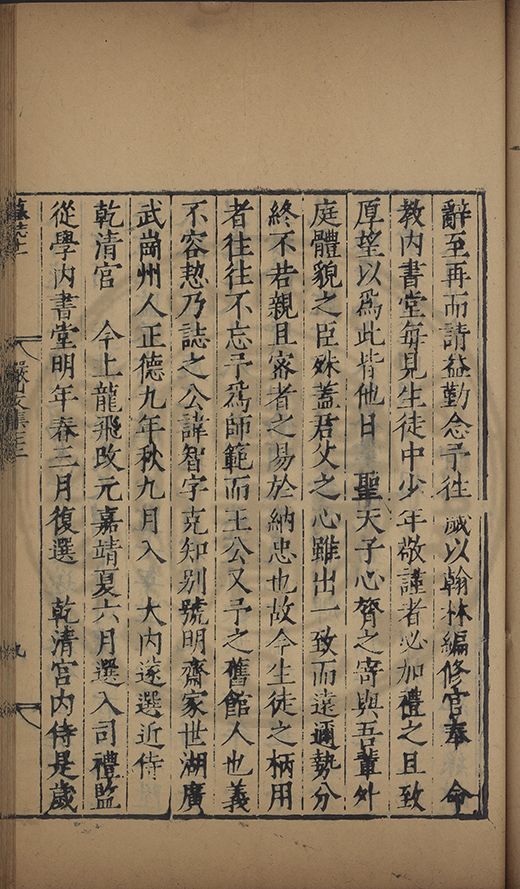 辭至再而請益勤念予徃歲以翰林編修官奉　命
教内書堂每見生徒中少年敬謹者必加禮之且致
厚望以爲此皆他日　聖天子心膂之寄與吾輩外
庭體貌之臣殊蓋君父之心雖出一致而遠邇勢分
終不若親且密者之易於納忠也故今生徒之柄用
者徃徃不忘予爲師範而王公又予之舊館人也義
不容恝乃誌之公諱智字克知别號明齋家世湖廣
武崗州人正德九年秋九月入　大内遂選近侍
乾清宫　今上龍飛改元嘉靖夏六月選入司禮監
從學内書堂明年春三月復選　乾清宫内侍是歲